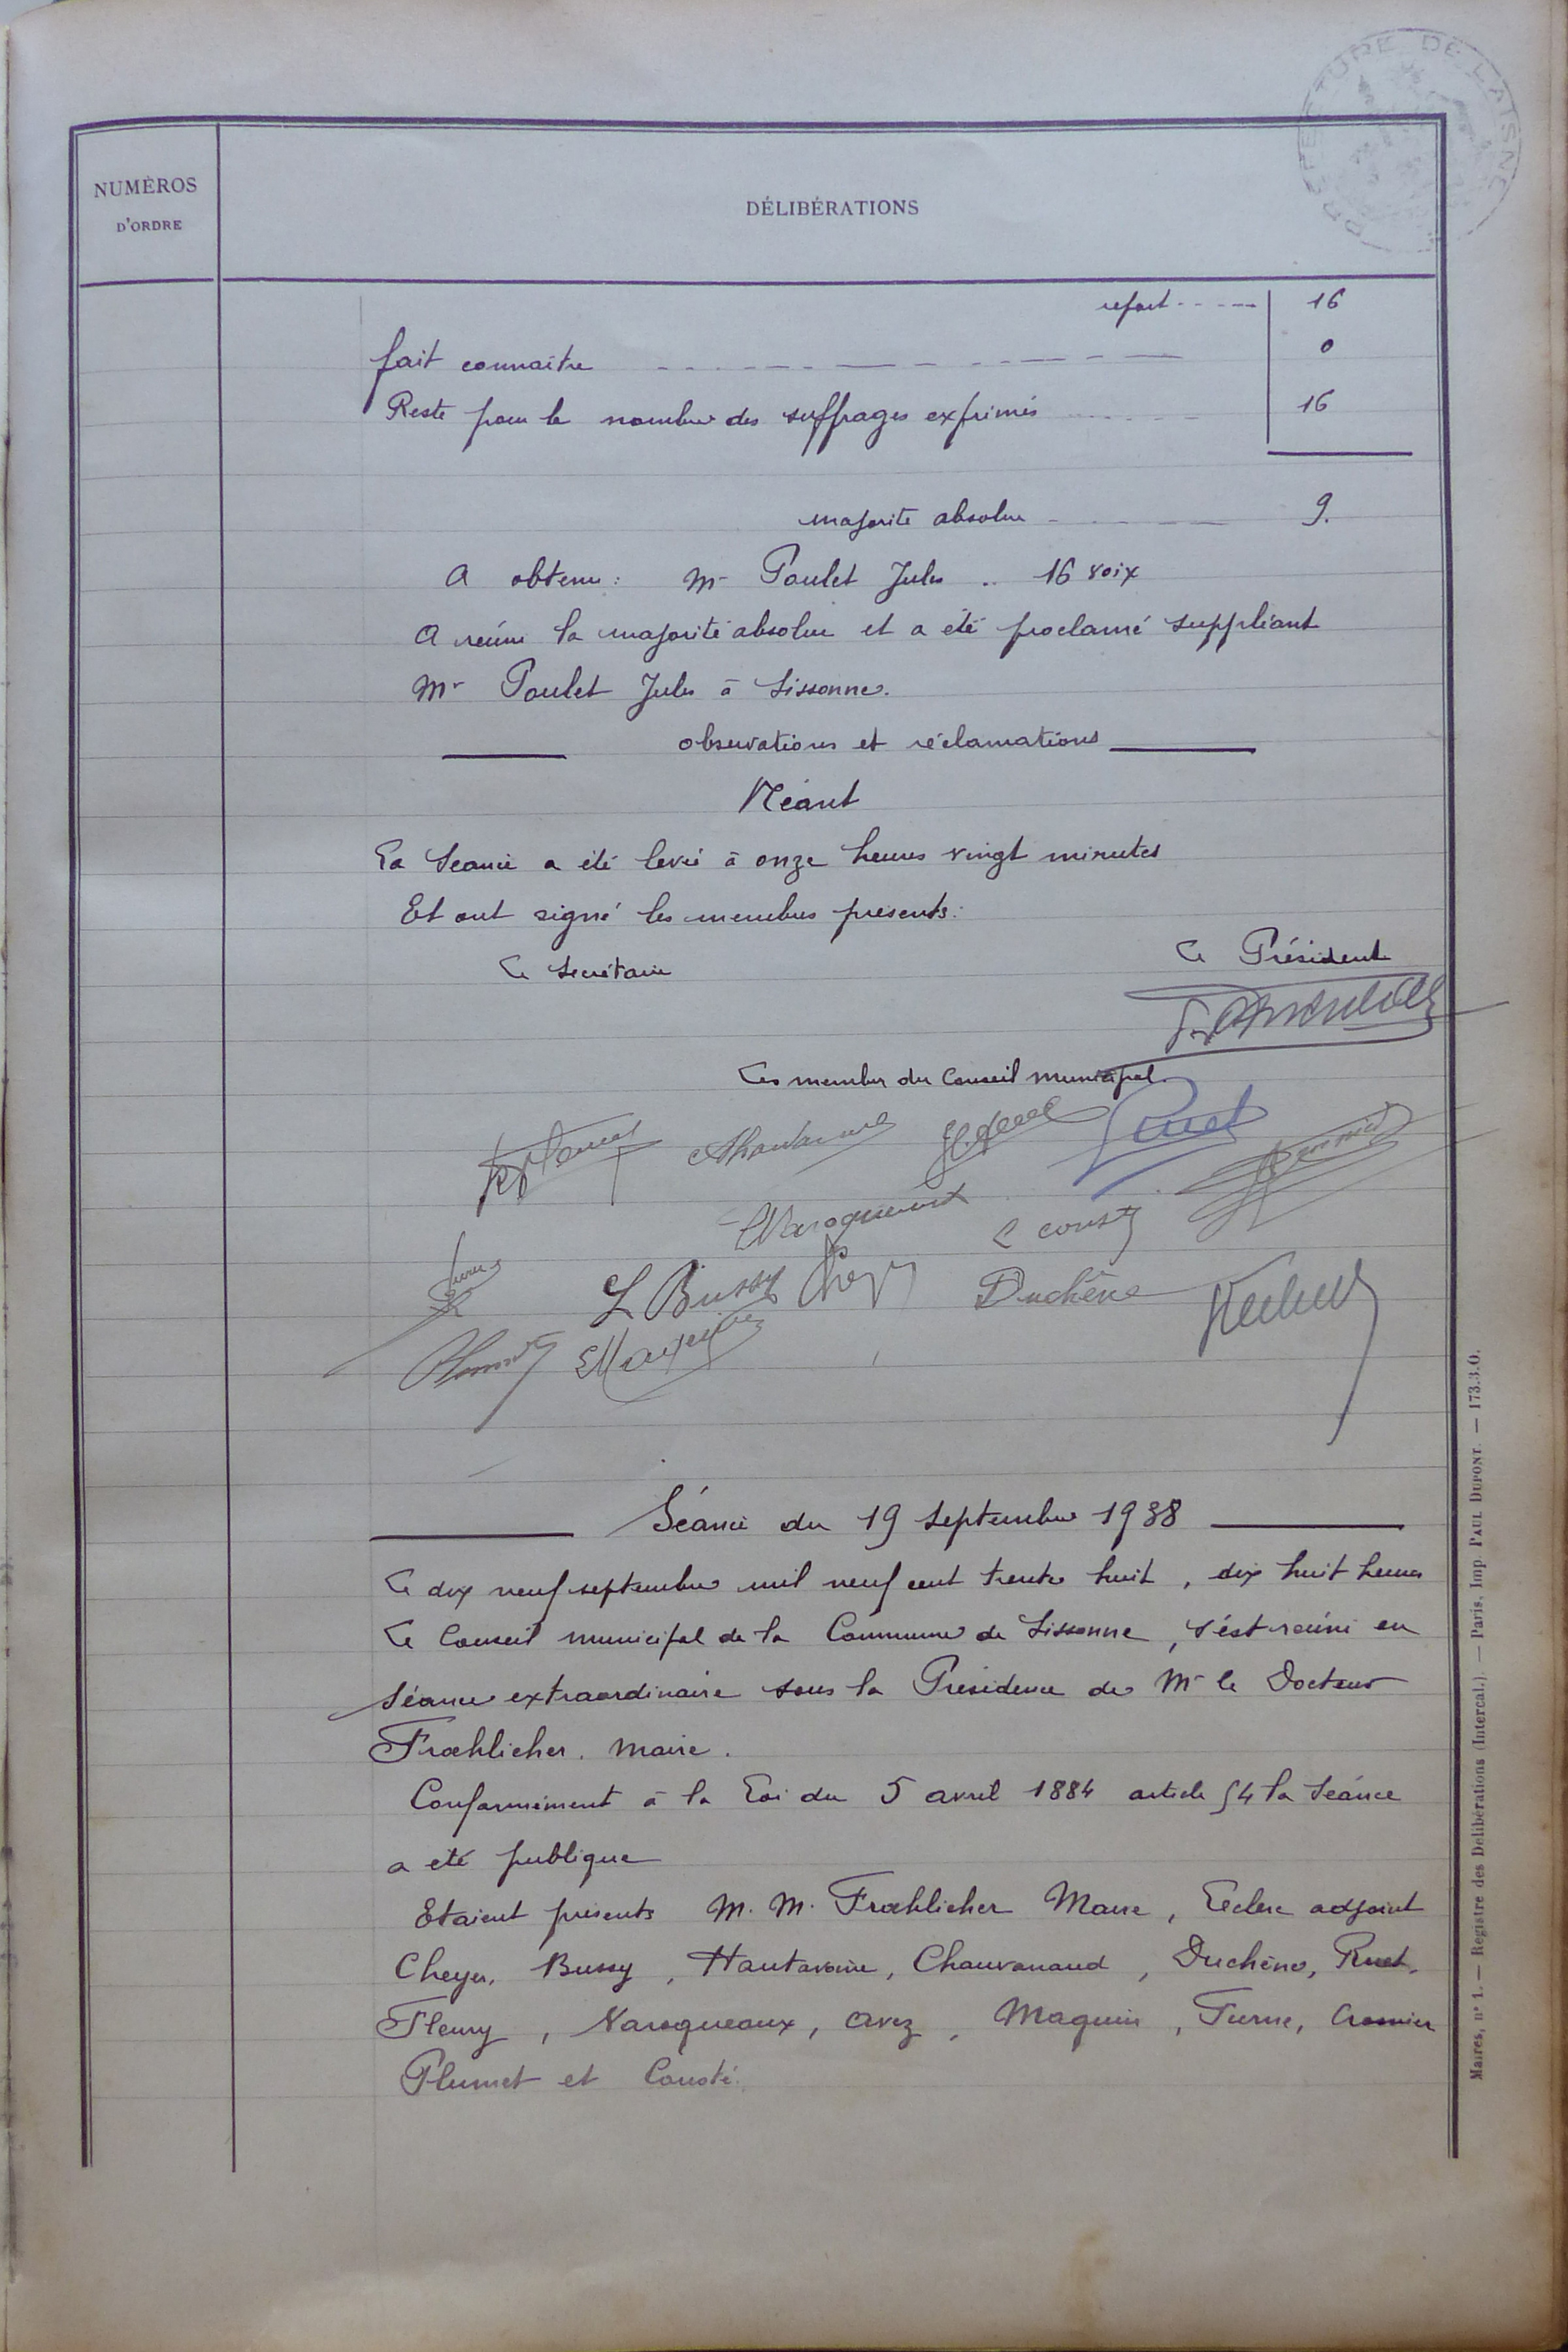 PREFECTURE DE L'AISNE
NUMÉROS
D'ORDRE
DÉLIBÉRATIONS
report 16
fait connaître 0
Reste pour le nombre des suffrages exprimés 16
majorité absolue 9.
A obtenu : Mr Poulet Jules .. 16 voix
A réuni la majorité absolue et a été proclamé suppléant
Mr Poulet Jules à Sissonne.
observations et réclamations
Néant
La Séance a été levée à onze heures vingt minutes
Et ont signé les membres présents :
Le Secrétaire
Le Président
Les membres du Conseil municipal
L Bussy
Duchêne
Séance du 19 septembre 1938
Le dix neuf septembre mil neuf cent trente huit, dix huit heures
Le Conseil municipal de la Commune de Sissonne, s'est réuni en
Séance extraordinaire sous la Présidence de Mr le Docteur
Froehlicher. Maire.
Conformément à la Loi du 5 avril 1884 article 54 la Séance
a été publique
Etaient présents M. M. Froehlicher Maire, Leclerc adjoint
Cheyer, Bussy, Hautavoine, Chauvanaud, Duchêne, Ruet,
Fleury, Varoqueaux, Avez, Maquin, Turne, Cromier
Plumet et Cousté.
Maires, n° 1. — Registre des Délibérations (Intercal.). — Paris, Imp. PAUL DUPONT. — 173.3.0.